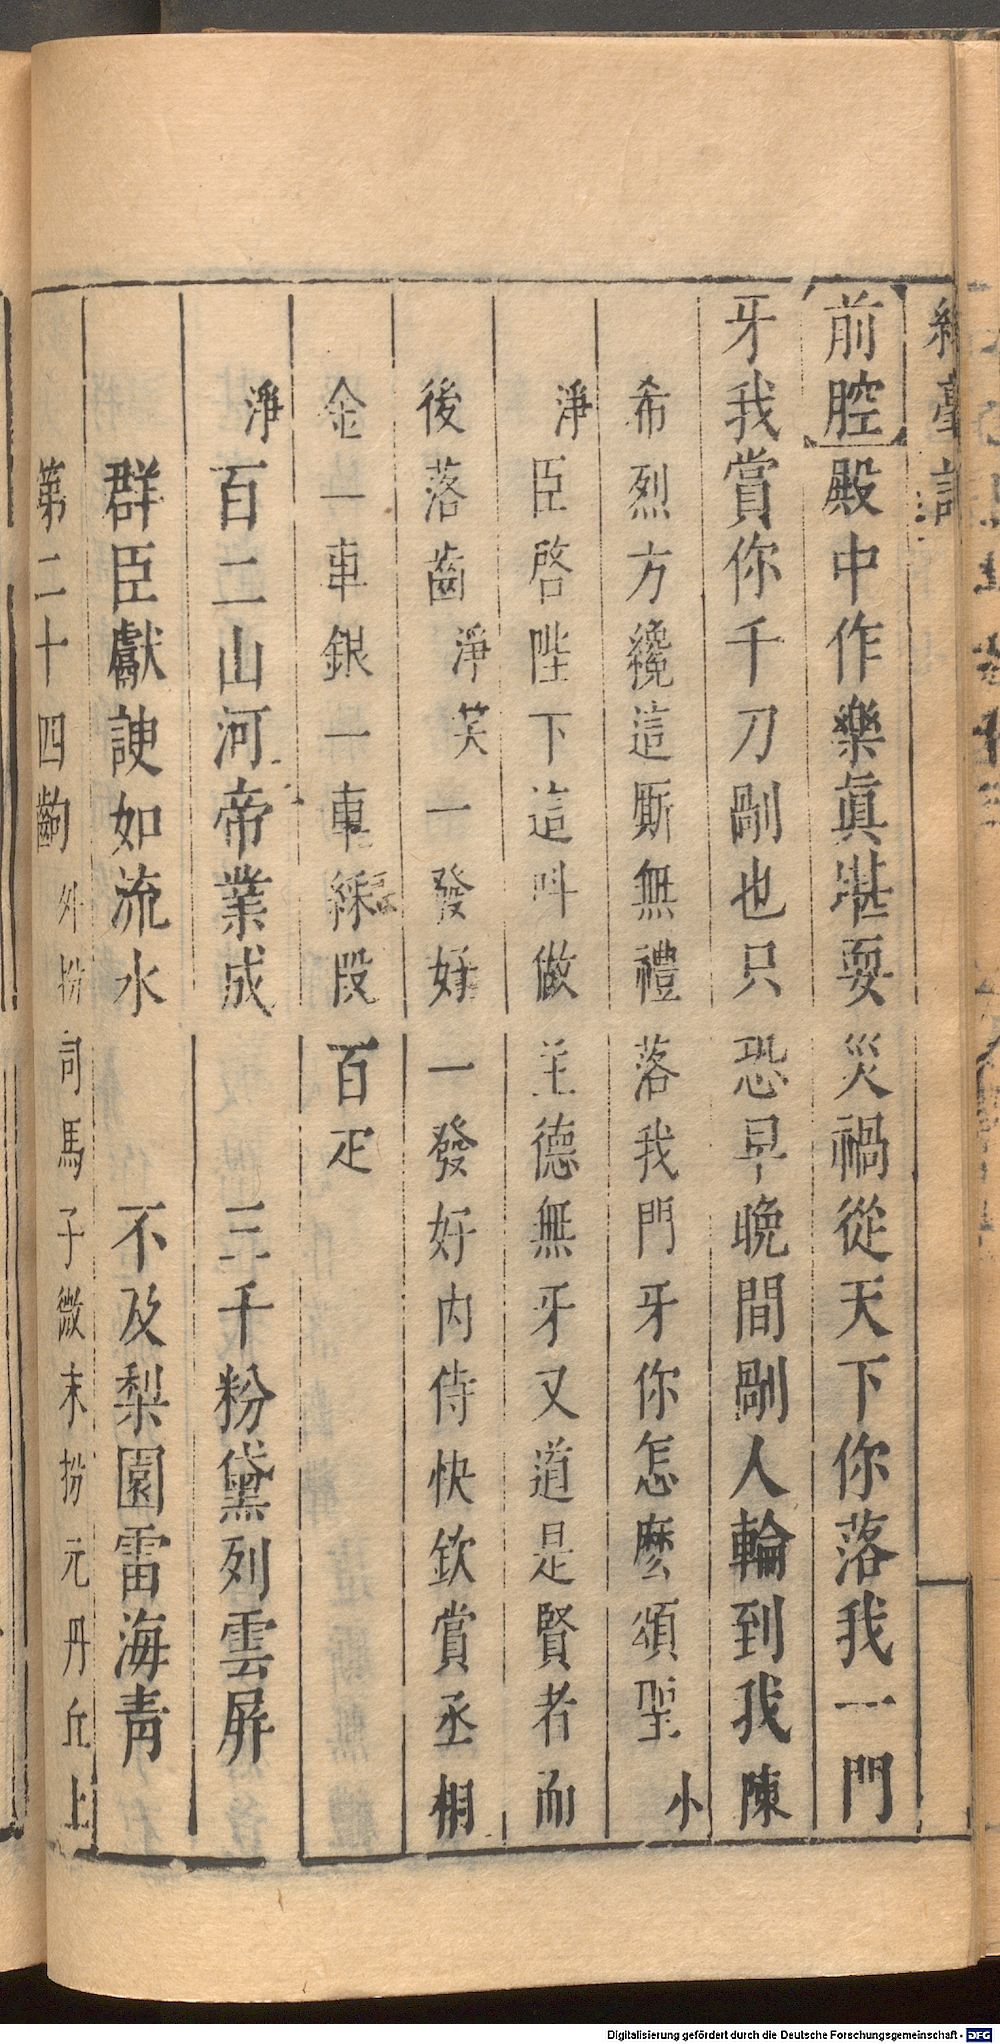 綵毫記
前腔 殿中作樂眞堪耍災禍從天下你落我一門
牙我賞你千刀剮也只恐早晚間剮人輪到我陳
希烈方纔這厮無禮落我門牙你怎麽頌聖 小
淨 臣啓陛下這呌做主德無牙又道是賢者而
後落齒 淨笑 一發好一發好内侍快欽賞丞相
金一車銀一車綵段百疋
淨 百二山河帝業成 三千粉黛列雲屏
群臣獻諛如流水 不及梨園雷海青
第二十四齣 外扮司馬子微末扮元丹丘上
Digitalisierung gefördert durch die Deutsche Forschungsgemeinschaft - DFG